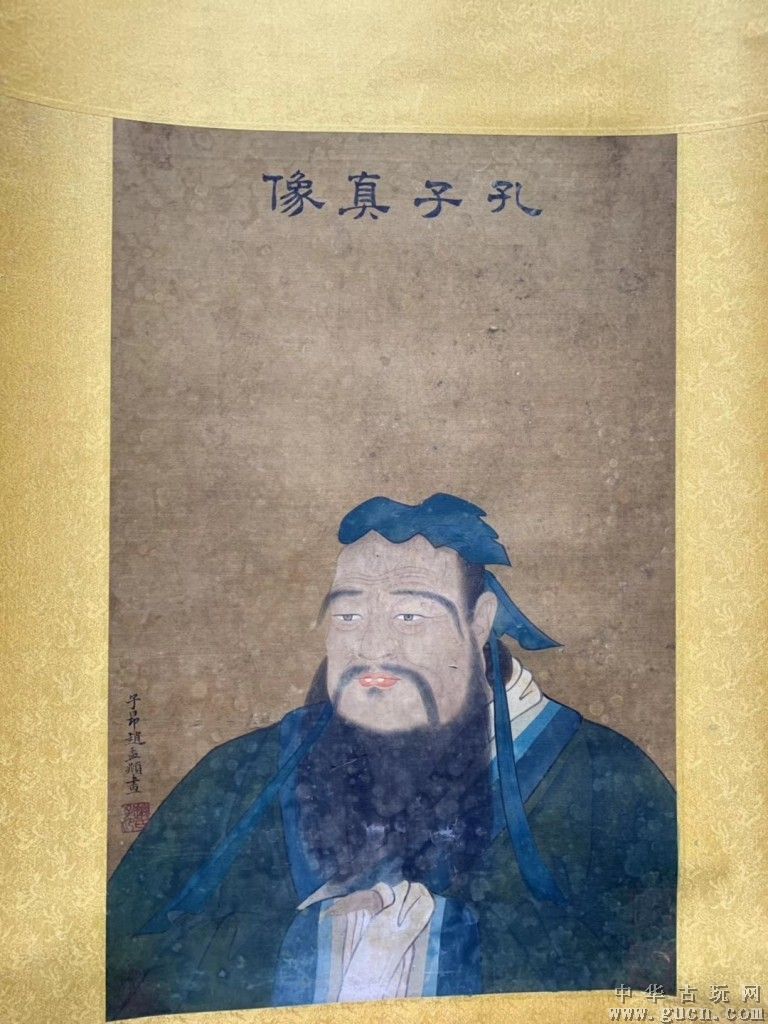 孔子真像
子昂趙孟頫畫
中华古玩网
www.gucn.com